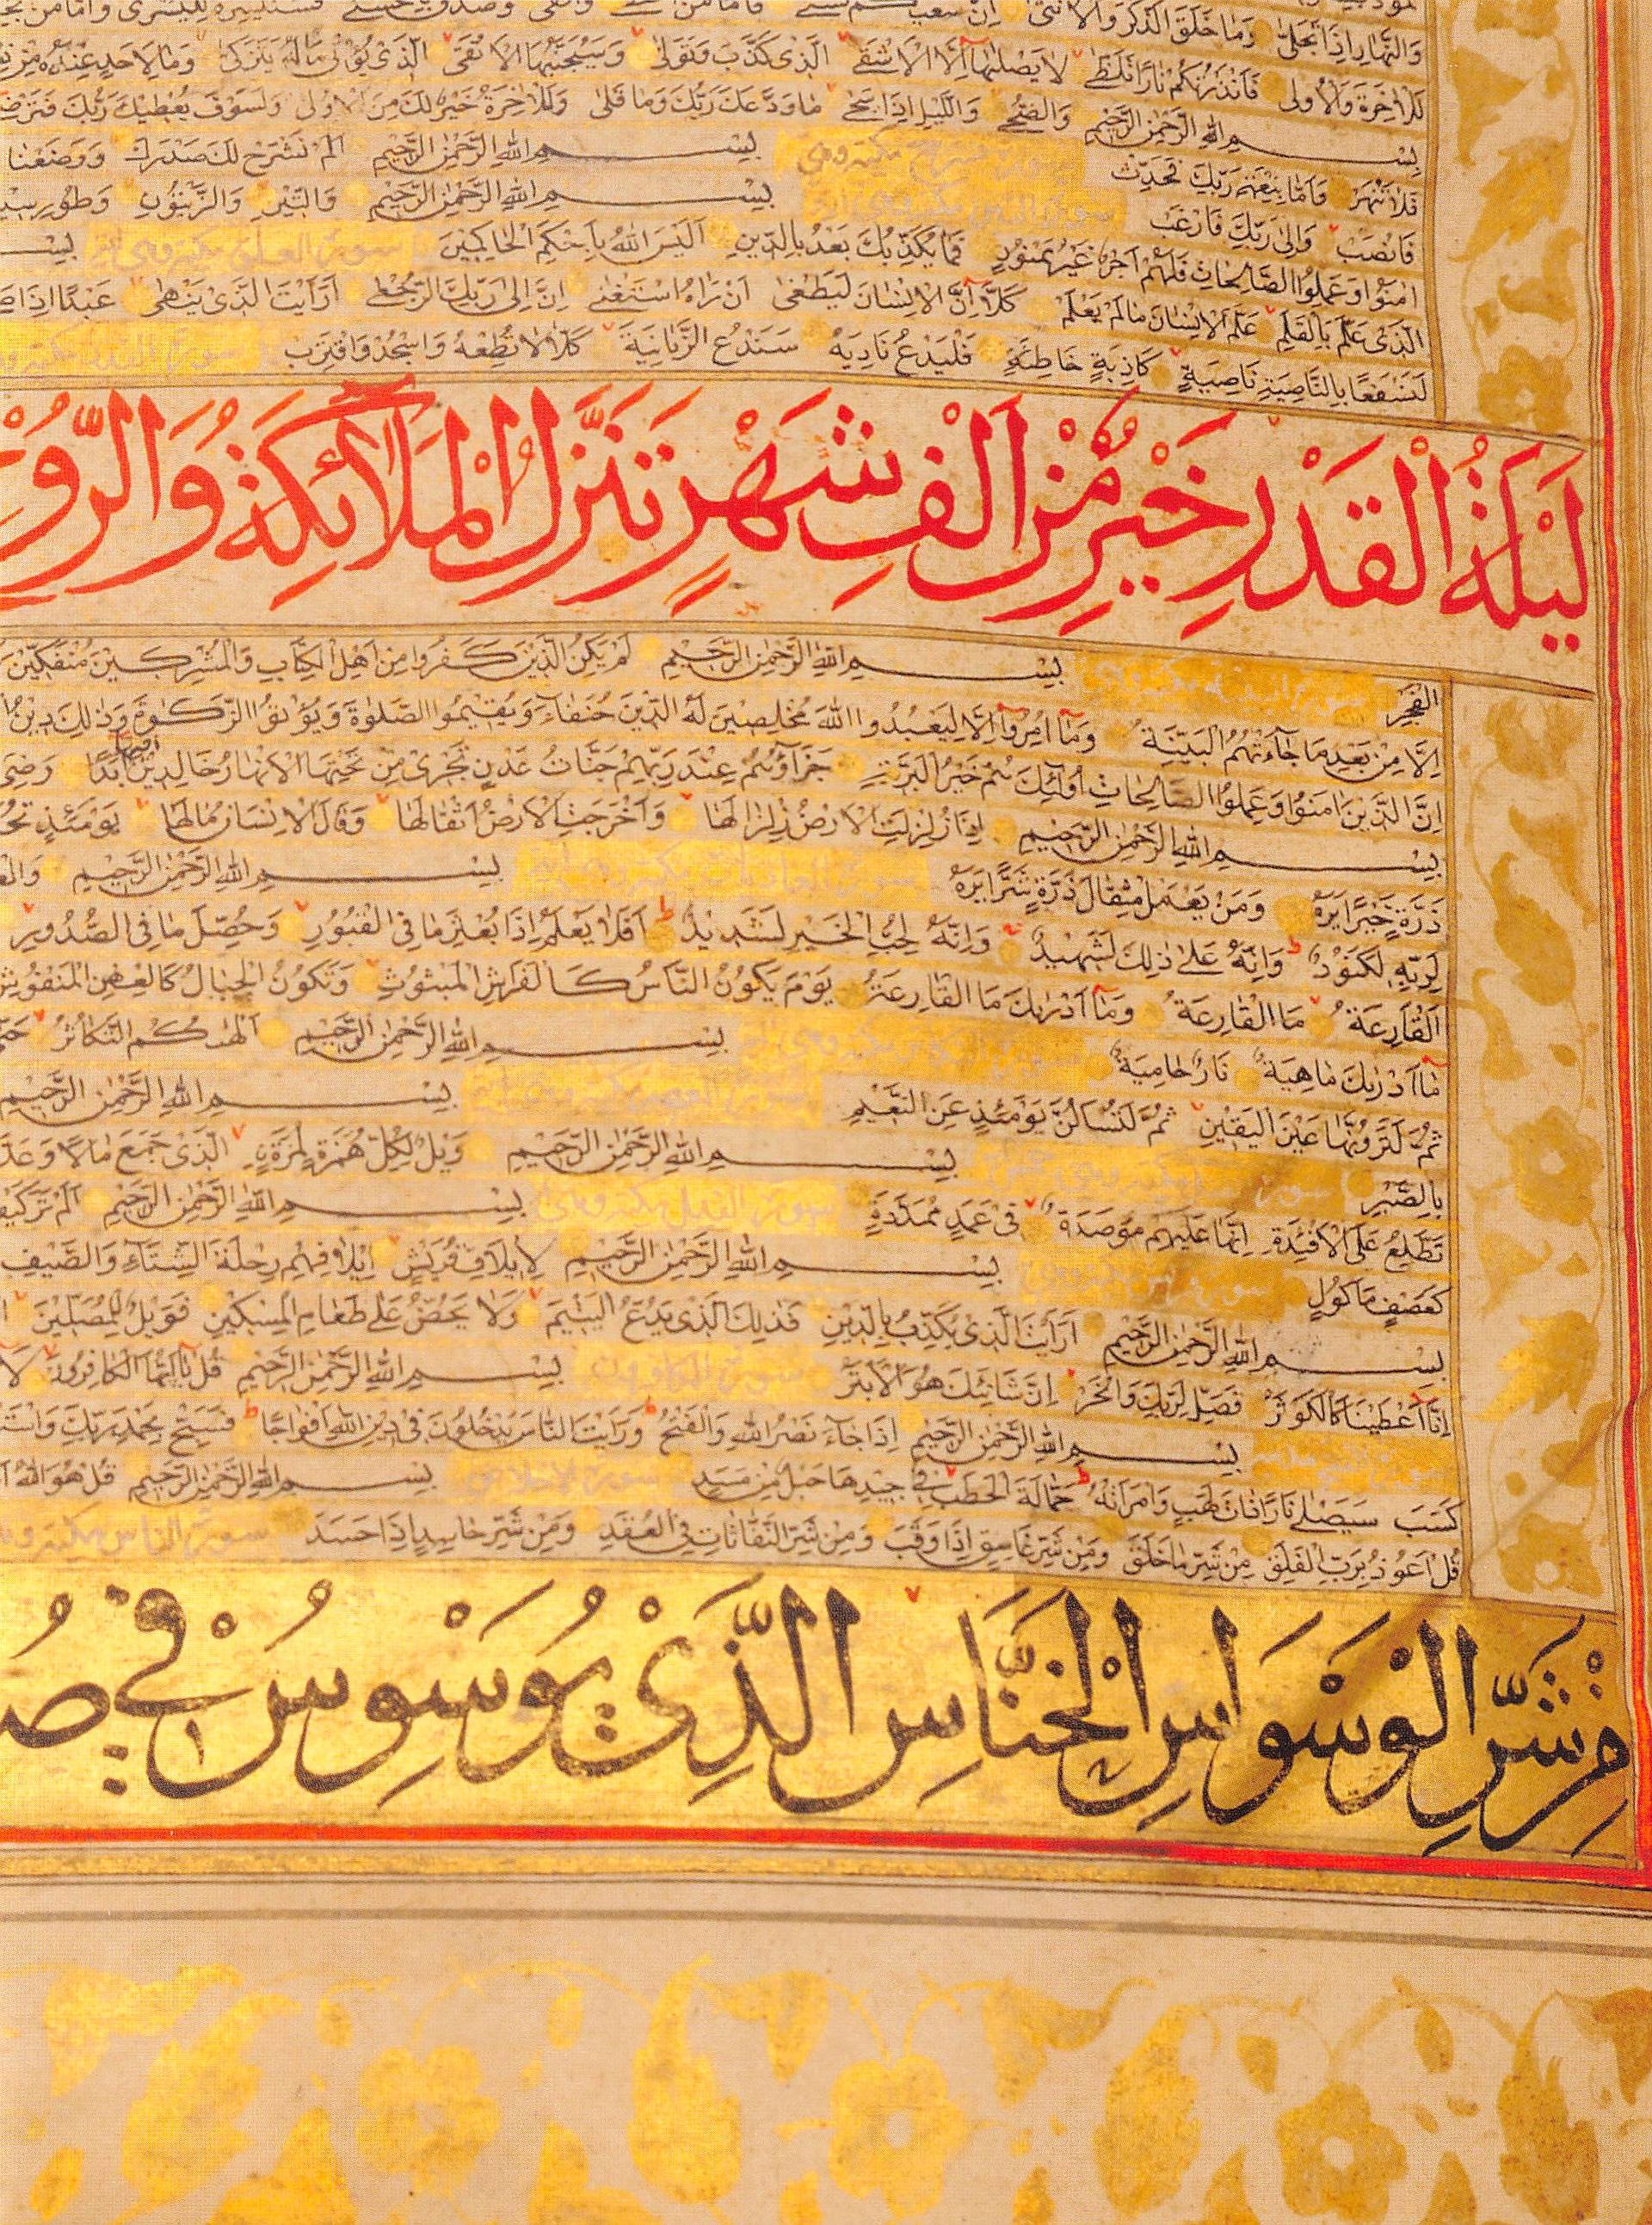 وَالنَّهَارِ اِذَا تَجَلّٰى وَمَا خَلَقَ الذَّكَرَ وَالْاُنْثٰى اِنَّ سَعْيَكُمْ لَشَتّٰى فَاَمَّا مَنْ وَاتَّقٰى وَصَدَّقَ بِالْحُسْنٰى فَسَنُيَسِّرُهُ لِلْيُسْرٰى وَاَمَّا مَنْ
لَلْاٰخِرَةَ وَالْاُولٰى فَاَنْذَرْتُكُمْ نَارًا تَلَظّٰى لَا يَصْلٰيهَا اِلَّا الْاَشْقَى الَّذِى كَذَّبَ وَتَوَلّٰى وَسَيُجَنَّبُهَا الْاَتْقَى الَّذِى يُؤْتِى مَالَهُ يَتَزَكّٰى وَمَا لِاَحَدٍ عِنْدَهُ مِنْ
بِسْمِ اللهِ الرَّحْمٰنِ الرَّحِيمِ وَالضُّحٰى وَاللَّيْلِ اِذَا سَجٰى مَا وَدَّعَكَ رَبُّكَ وَمَا قَلٰى وَلَلْاٰخِرَةُ خَيْرٌ لَكَ مِنَ الْاُولٰى وَلَسَوْفَ يُعْطِيكَ رَبُّكَ فَتَرْضٰى
فَلَا تَنْهَرْ وَاَمَّا بِنِعْمَةِ رَبِّكَ فَحَدِّثْ بِسْمِ اللهِ الرَّحْمٰنِ الرَّحِيمِ اَلَمْ نَشْرَحْ لَكَ صَدْرَكَ وَوَضَعْنَا
فَانْصَبْ وَاِلٰى رَبِّكَ فَارْغَبْ سورة التين مكية وهى بِسْمِ اللهِ الرَّحْمٰنِ الرَّحِيمِ وَالتِّينِ وَالزَّيْتُونِ وَطُورِ
اٰمَنُوا وَعَمِلُوا الصَّالِحَاتِ فَلَهُمْ اَجْرٌ غَيْرُ مَمْنُونٍ فَمَا يُكَذِّبُكَ بَعْدُ بِالدِّينِ اَلَيْسَ اللهُ بِاَحْكَمِ الْحَاكِمِينَ سورة العلق مكية وهى
الَّذِى عَلَّمَ بِالْقَلَمِ عَلَّمَ الْاِنْسَانَ مَا لَمْ يَعْلَمْ كَلَّا اِنَّ الْاِنْسَانَ لَيَطْغٰى اَنْ رَاٰهُ اسْتَغْنٰى اِنَّ اِلٰى رَبِّكَ الرُّجْعٰى اَرَاَيْتَ الَّذِى يَنْهٰى عَبْدًا اِذَا
لَنَسْفَعًا بِالنَّاصِيَةِ نَاصِيَةٍ كَاذِبَةٍ خَاطِئَةٍ فَلْيَدْعُ نَادِيَهُ سَنَدْعُ الزَّبَانِيَةَ كَلَّا لَا تُطِعْهُ وَاسْجُدْ وَاقْتَرِبْ
لَيْلَةُ الْقَدْرِ خَيْرٌ مِنْ اَلْفِ شَهْرٍ تَنَزَّلُ الْمَلٰٓائِكَةُ وَالرُّوحُ
الْفَجْرِ بِسْمِ اللهِ الرَّحْمٰنِ الرَّحِيمِ لَمْ يَكُنِ الَّذِينَ كَفَرُوا مِنْ اَهْلِ الْكِتَابِ وَالْمُشْرِكِينَ مُنْفَكِّينَ
اِلَّا مِنْ بَعْدِ مَا جَآءَتْهُمُ الْبَيِّنَةُ وَمَآ اُمِرُوٓا اِلَّا لِيَعْبُدُوا اللهَ مُخْلِصِينَ لَهُ الدِّينَ حُنَفَآءَ وَيُقِيمُوا الصَّلٰوةَ وَيُؤْتُوا الزَّكٰوةَ وَذٰلِكَ دِينُ
اِنَّ الَّذِينَ اٰمَنُوا وَعَمِلُوا الصَّالِحَاتِ اُولٰٓئِكَ هُمْ خَيْرُ الْبَرِيَّةِ جَزَآؤُهُمْ عِنْدَ رَبِّهِمْ جَنَّاتُ عَدْنٍ تَجْرِى مِنْ تَحْتِهَا الْاَنْهَارُ خَالِدِينَ فِيهَآ اَبَدًا رَضِىَ
بِسْمِ اللهِ الرَّحْمٰنِ الرَّحِيمِ اِذَا زُلْزِلَتِ الْاَرْضُ زِلْزَالَهَا وَاَخْرَجَتِ الْاَرْضُ اَثْقَالَهَا وَقَالَ الْاِنْسَانُ مَا لَهَا يَوْمَئِذٍ
ذَرَّةٍ خَيْرًا يَرَهُ وَمَنْ يَعْمَلْ مِثْقَالَ ذَرَّةٍ شَرًّا يَرَهُ سورة العاديات مكية وهى بِسْمِ اللهِ الرَّحْمٰنِ الرَّحِيمِ
لِرَبِّهِ لَكَنُودٌ وَاِنَّهُ عَلٰى ذٰلِكَ لَشَهِيدٌ وَاِنَّهُ لِحُبِّ الْخَيْرِ لَشَدِيدٌ اَفَلَا يَعْلَمُ اِذَا بُعْثِرَ مَا فِى الْقُبُورِ وَحُصِّلَ مَا فِى الصُّدُورِ
اَلْقَارِعَةُ مَا الْقَارِعَةُ وَمَآ اَدْرٰيكَ مَا الْقَارِعَةُ يَوْمَ يَكُونُ النَّاسُ كَالْفَرَاشِ الْمَبْثُوثِ وَتَكُونُ الْجِبَالُ كَالْعِهْنِ الْمَنْفُوشِ
مَآ اَدْرٰيكَ مَا هِيَهْ نَارٌ حَامِيَةٌ بِسْمِ اللهِ الرَّحْمٰنِ الرَّحِيمِ اَلْهٰيكُمُ التَّكَاثُرُ
ثُمَّ لَتَرَوُنَّهَا عَيْنَ الْيَقِينِ ثُمَّ لَتُسْاَلُنَّ يَوْمَئِذٍ عَنِ النَّعِيمِ سورة العصر مكية وهى بِسْمِ اللهِ الرَّحْمٰنِ الرَّحِيمِ
بِالصَّبْرِ بِسْمِ اللهِ الرَّحْمٰنِ الرَّحِيمِ وَيْلٌ لِكُلِّ هُمَزَةٍ لُمَزَةٍ الَّذِى جَمَعَ مَالًا وَعَدَّدَهُ
تَطَّلِعُ عَلَى الْاَفْئِدَةِ اِنَّهَا عَلَيْهِمْ مُؤْصَدَةٌ فِى عَمَدٍ مُمَدَّدَةٍ سورة الفيل مكية وهى بِسْمِ اللهِ الرَّحْمٰنِ الرَّحِيمِ اَلَمْ تَرَ كَيْفَ
كَعَصْفٍ مَاْكُولٍ بِسْمِ اللهِ الرَّحْمٰنِ الرَّحِيمِ لِاِيلَافِ قُرَيْشٍ اِيلَافِهِمْ رِحْلَةَ الشِّتَآءِ وَالصَّيْفِ
بِسْمِ اللهِ الرَّحْمٰنِ الرَّحِيمِ اَرَاَيْتَ الَّذِى يُكَذِّبُ بِالدِّينِ فَذٰلِكَ الَّذِى يَدُعُّ الْيَتِيمَ وَلَا يَحُضُّ عَلٰى طَعَامِ الْمِسْكِينِ فَوَيْلٌ لِلْمُصَلِّينَ
اِنَّآ اَعْطَيْنَاكَ الْكَوْثَرَ فَصَلِّ لِرَبِّكَ وَانْحَرْ اِنَّ شَانِئَكَ هُوَ الْاَبْتَرُ سورة الكافرون بِسْمِ اللهِ الرَّحْمٰنِ الرَّحِيمِ قُلْ يَآ اَيُّهَا الْكَافِرُونَ لَآ
بِسْمِ اللهِ الرَّحْمٰنِ الرَّحِيمِ اِذَا جَآءَ نَصْرُ اللهِ وَالْفَتْحُ وَرَاَيْتَ النَّاسَ يَدْخُلُونَ فِى دِينِ اللهِ اَفْوَاجًا فَسَبِّحْ بِحَمْدِ رَبِّكَ
كَسَبَ سَيَصْلٰى نَارًا ذَاتَ لَهَبٍ وَامْرَاَتُهُ حَمَّالَةَ الْحَطَبِ فِى جِيدِهَا حَبْلٌ مِنْ مَسَدٍ سورة الاخلاص بِسْمِ اللهِ الرَّحْمٰنِ الرَّحِيمِ قُلْ هُوَ اللهُ
قُلْ اَعُوذُ بِرَبِّ الْفَلَقِ مِنْ شَرِّ مَا خَلَقَ وَمِنْ شَرِّ غَاسِقٍ اِذَا وَقَبَ وَمِنْ شَرِّ النَّفَّاثَاتِ فِى الْعُقَدِ وَمِنْ شَرِّ حَاسِدٍ اِذَا حَسَدَ سورة الناس مكية
مِنْ شَرِّ الْوَسْوَاسِ الْخَنَّاسِ الَّذِى يُوَسْوِسُ فِى